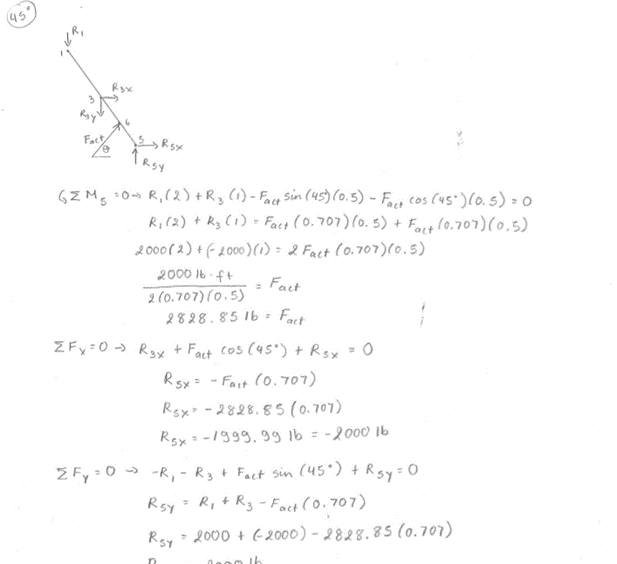 45°
R1
1
R3x
3
R3y
6
Fact
θ
5
R5x
R5y
↺ΣM5=0→ R1(2)+R3(1)-Fact sin(45°)(0.5) - Fact cos(45°)(0.5)=0
R1(2) + R3(1) = Fact(0.707)(0.5) + Fact(0.707)(0.5)
2000(2)+(-2000)(1) = 2 Fact(0.707)(0.5)
2000 lb·ft
2(0.707)(0.5)
= Fact
2828.85 lb = Fact
ΣFx=0 → R3x + Fact cos(45°) + R5x = 0
R5x = -Fact(0.707)
R5x = -2828.85(0.707)
R5x = -1999.99 lb = -2000 lb
ΣFy=0 → -R1 - R3 + Fact sin(45°) + R5y=0
R5y = R1 + R3 - Fact(0.707)
R5y = 2000 + (-2000) - 2828.85(0.707)